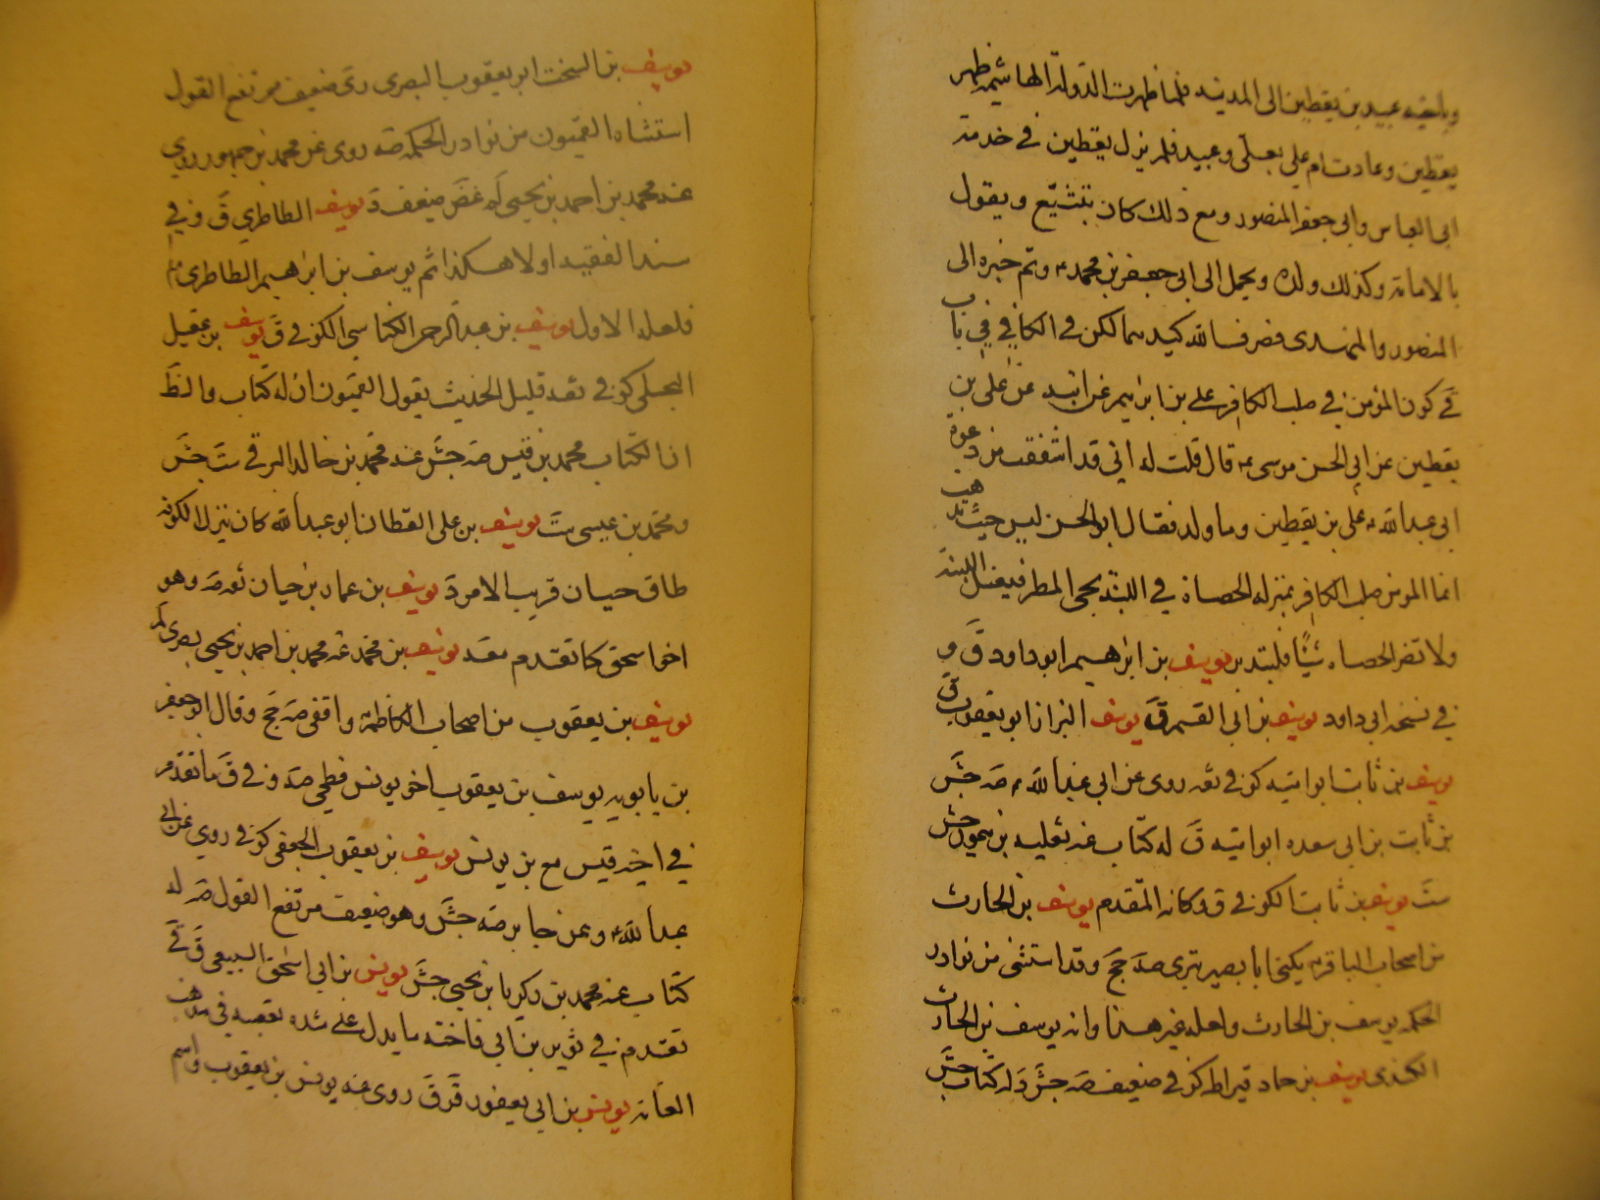 وباخيه عبيد بن يقطين الى المدينه فلما ظهرت الدولة الهاشيمه ظهر
يقطين وعادت ام علي بعلي وعبيد فلم يزل يقطين في خدمة
ابى العباس وابى جعفر المنصور ومع ذلك كان يتشيع ويقول
بالامامة وكذلك ولده ويحمل الى ابى جعفر بن محمد ع ونم خبره الى
المنصور والمهدى فصرف الله كيدهما لكن في الكافي في باب
في كون المؤمن في صلب الكافر علي بن ابرهيم عن ابيه عن على بن
يقطين عن ابي الحسن موسى ع قال قلت له اني قد اشفقت من دعوة
ابى عبد الله ع على بن يقطين وما ولد فقال ابو الحسن ليس حيث تذهب
انما المومن في صلب الكافر بمنزله الحصاة في اللبنة يجى المطر فيغسل اللبنة
ولا تضر الحصاه شيئا فليتدبر يوسف بن ابرهيم ابو داود ق و
في نسخه ابي داود يوسف بن ابى القسم ق يوسف البزاز ابو يعقوب ق
يوسف بن ثابت ابو اميه كوفى ثقه روى عن ابي عبد الله ع صه جش
بن ثابت بن ابى سعده ابو اميه ق له كتاب عنه ثعلبه بن ميمون جش
ست يوسف بن ثابت الكوفى ق وكانه المقدم يوسف بن الحارث
من اصحاب الباقر ع يكنى ابا بصير بترى صه جج وقد استثنى من نوادر
الحكمه يوسف بن الحارث ولعله غير هذا وانه يوسف بن الحارث
الكندى يوسف بن حماد قيراط كوفى ضعيف صه جش د له كتاب جش
يوسف بن السخت ابو يعقوب البصرى رى ضعيف مرتفع القول
استثناه القميون من نوادر الحكمه صه روى عن محمد بن جمهور روى
عنه محمد بن احمد بن يحيى لم غض ضعيف د يوسف الطاطري ق و في
سند الفقيه اولا هكذا ثم يوسف بن ابراهيم الطاطرى
فلعله الاول يوسف بن عبد الرحمن الكناسى الكوفى ق يوسف بن عقيل
البجلى كوفى ثقه قليل الحديث يقول القميون ان له كتاب والنظ
ان الكتاب محمد بن قيس صه جش عنه محمد بن خالد البرقى ست جش
ومحمد بن عيسى ست يوسف بن على القطان ابو عبد الله كان ينزل الكوفه
طاق حيان قريب الامر د يوسف بن عمار بن حيان ثقه صه وهو
اخو اسحق كما تقدم معه يوسف بن محمد عنه محمد بن احمد بن يحيى بصرى لم
يوسف بن يعقوب من اصحاب الكاظم ع واقفى صه جج وقال ابو جعفر
بن بابويه يوسف بن يعقوب اخو يونس فطحى صه و فى ق ما تقدم
في اخيه قيس مع بن يونس يوسف بن يعقوب الجعفى كوفى روى عن ابى
عبد الله ع وعن جابر صه جش وهو ضعيف مرتفع القول صه له
كتاب عنه محمد بن زكريا بن يحيى جش يونس بن ابى اسحق السبيعى ق قى
تقدم في ثوير بن ابى فاخته ما يدل على شده تعصبه فى مذهب
العامه يونس بن ابى يعفور ق ق روى عنه يونس بن يعقوب واسم